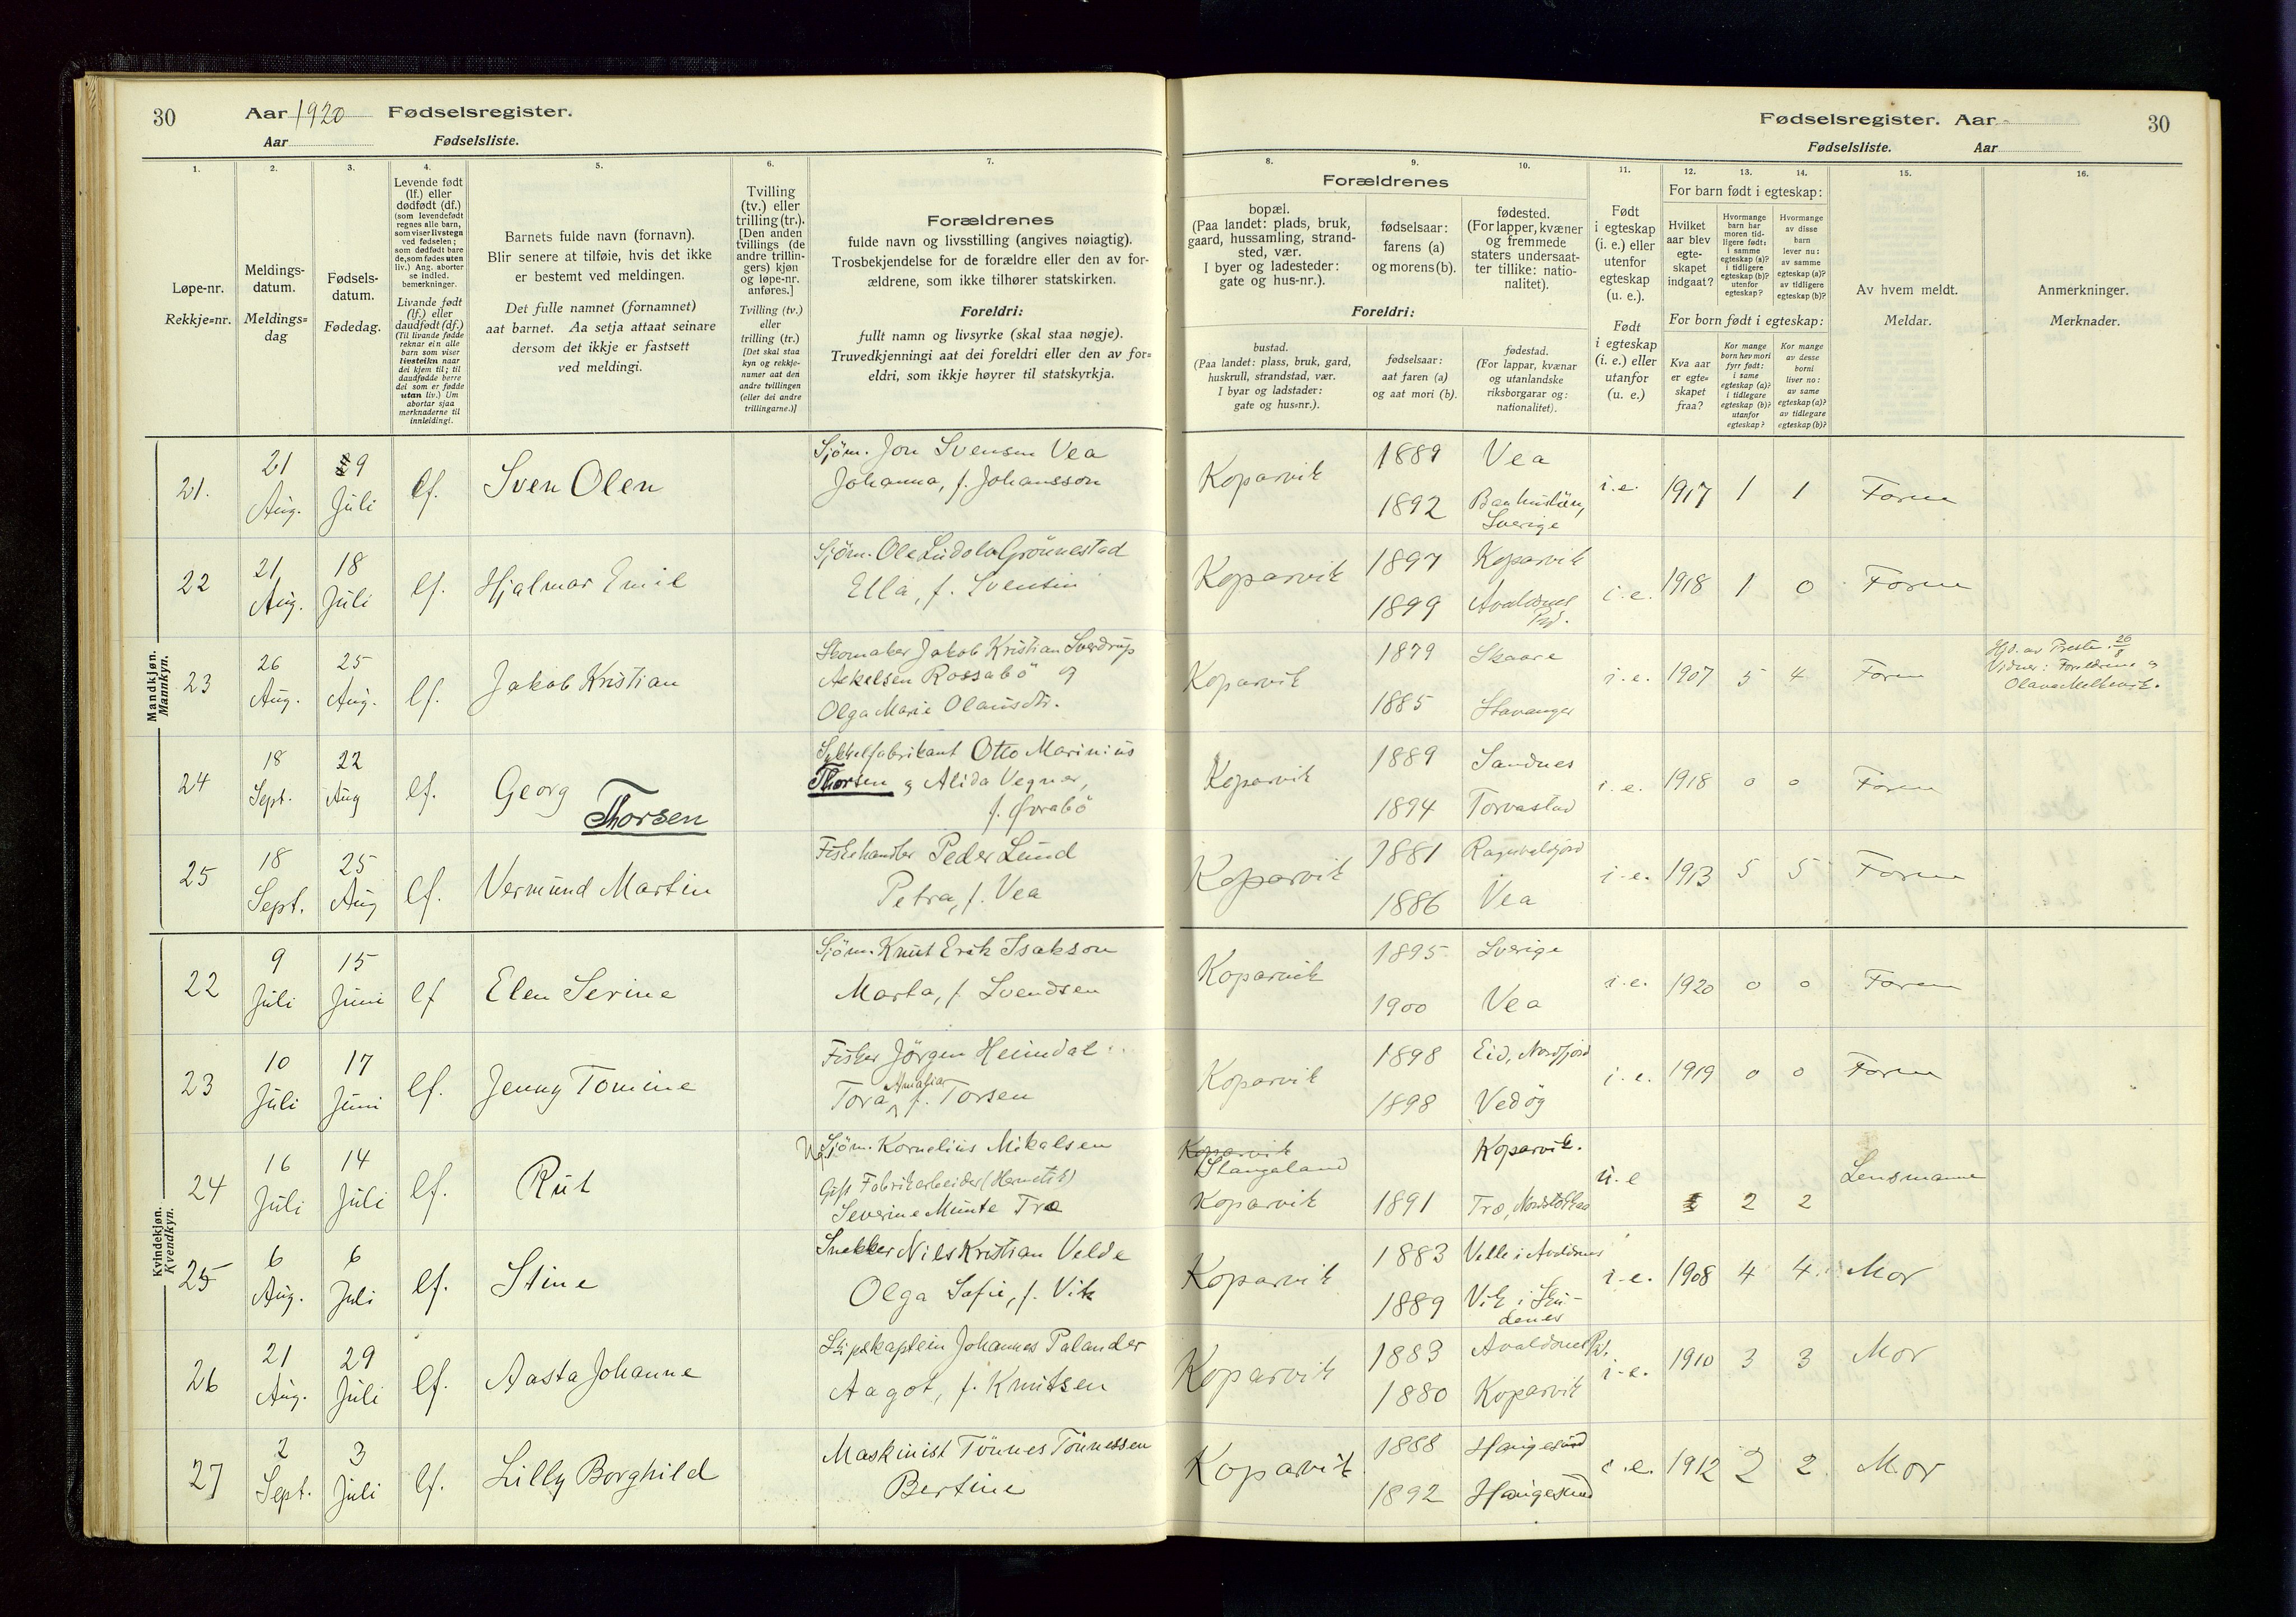 30
Aar 1920 Fødselsregister.
Aar Fødselsliste.
Fødselsregister. Aar
Fødselsliste. Aar
30
1. 2. 3. 4. 5. 6. 7.
Løpe-nr.
Rekkje=nr.
Meldings-
datum.
Meldings=
dag
Fødsels-
datum.
Fødedag.
Levende født
(lf.) eller
dødfødt (df.)
(som levendefødt
regnes alle barn,
som viser livstegn
ved fødselen;
som dødfødt bare
de, som fødes uten
liv.) Ang. aborter
se indled.
bemerkninger.
Livande født
(lf.) eller
daudfødt (df.)
(Til livande fødde
reknar ein alle
barn som viser
livsteikn naar
dei kjem til; til
daudfødde berre
dei som er fødde
utan liv.) Um
abortar sjaa
merknaderne til
innleidingi.
Barnets fulde navn (fornavn).
Blir senere at tilføie, hvis det ikke
er bestemt ved meldingen.
Det fulle namnet (fornamnet)
aat barnet. Aa setja attaat seinare
dersom det ikkje er fastsett
ved meldingi.
Tvilling
(tv.) eller
trilling (tr.).
[Den anden
tvillings (de
andre trillin-
gers) kjøn
og løpe-nr.
anføres.]
Tvilling (tv.)
eller
trilling (tr.)
[Det skal staa
kyn og rekkje-
numer aat den
andre tvillingen
(eller dei andre
trillingarne.)]
Forældrenes
fulde navn og livsstilling (angives nøiagtig).
Trosbekjendelse for de forældre eller den av for-
ældrene, som ikke tilhører statskirken.
Foreldri:
fullt namn og livsyrke (skal staa nøgje).
Truvedkjenningi aat dei foreldri eller den av for=
eldri, som ikkje høyrer til statskyrkja.
8. 9. 10. 11. 12. 13. 14. 15. 16.
Forældrenes
bopæl.
(Paa landet: plads, bruk,
gaard, hussamling, strand-
sted, vær.
I byer og ladesteder:
gate og hus-nr.).
fødselsaar:
farens (a)
og morens (b).
fødested.
(For lapper, kvæner
og fremmede
staters undersaat-
ter tillike: natio-
nalitet).
Foreldri:
bustad.
(Paa landet: plass, bruk, gard,
huskrull, strandstad, vær.
I byar og ladstader:
gate og hus=nr.).
fødselsaar:
aat faren (a)
og aat mori (b).
fødestad.
(For lappar, kvænar
og utanlandske
riksborgarar og:
nationalitet).
Født
i egteskap
(i. e.) eller
utenfor
egteskap
(u. e.).
Født
i egteskap
(i. e.) eller
utanfor
(u. e.)
For barn født i egteskap:
Hvilket
aar blev
egte-
skapet
indgaat?
Hvormange
barn har
moren tid-
ligere født:
i samme
egteskap (a)?
i tidligere
egteskap (b)?
utenfor
egteskap?
Hvormange
av disse
barn
lever nu:
av samme
egteskap (a)?
av tidligere
egteskap (b)?
For born født i egteskap:
Kva aar
er egte=
skapet
fraa?
Kor mange
born hev mori
fyrr født:
i same
egteskap (a)?
i tidlegare
egteskap (b)?
utanfor
egteskap?
Kor mange
av desse
borni
liver no:
av same
egteskap (a)?
av tidlegare
egteskap (b)?
Av hvem meldt.
Meldar.
Anmerkninger.
Merknader.
Mandkjøn.
Mannkyn.
21. 21 Aug. 9 Juli lf. Sven Olen
Sjøm. Jon Svensen Vea
Johanna, f. Johansson
Koparvik 1889 Vea
1892 Banhuslän,
Sverige
i.e. 1917 1 1 Faren
22 21 Aug. 18 Juli lf. Hjalmar Emil
Sjøm. Ole Ludolv Grönnestad
Ella, f. Svensen
Koparvik 1897 Koparvik
1899 Avaldsnes
Pd.
i.e. 1918 1 0 Faren
23 26 Aug. 25 Aug. lf. Jakob Kristian
Skomaker Jakob Kristian Sverdrup
Askelsen Rossabö og
Olga Marie Olausdtr.
Koparvik 1879 Skaare
1885 Stavanger
i.e. 1907 5 4 Faren
Hjd. av Presten 26/8
Vidner: Foreldrene og
Olava Melkevik.
24 18 Sept. 22 Aug lf. Georg Thorsen
Sykkelfabrikant Otto Marinius
Thorsen og Alida Vegner,
f. Øvrabö
Koparvik 1889 Sandnes
1894 Torvastad
i.e. 1918 0 0 Faren
25 18 Sept. 25 Aug lf. Vermund Martin
Fiskehandler Peder Lund
Petra, f. Vea
Koparvik 1881 Ragnvaldsjord
1886 Vea
i.e. 1913 5 5 Faren
Kvindekjøn.
Kvendkyn.
22 9 Juli 15 Juni lf Elen Serine
Sjøm. Knut Erik Isakson
Marta, f. Svendsen
Koparvik 1895 Sverige
1900 Vea
i.e. 1920 0 0 Faren
23 10 Juli 17 Juni lf. Jenny Tomine
Fisker Jörgen Heimdal
Tora Amalia f. Torsen
Koparvik 1898 Eid, Nordfjord
1898 Vedøy
i.e. 1919 0 0 Faren
24 16 Juli 14 Juli lf. Rut
Ug. Sjøm. Kornelius Mikalsen
Gift Fabrikarbeider (Hermetik)
Severine Munte Træ
Koparvik
Stangeland Koparvik.
Koparvik 1891 Træ,
u.e 2 2 Lensmannen
25 6 Aug. 6 Juli lf. Stine
Snekker Nils Kristian Velde
Olga Sofie, f. Vik
Koparvik 1883 Velle i Avaldsnes
1889 Vik i Sku-
denes
i.e. 1908 4 4. Mor
26 21 Aug. 29 Juli lf. Aasta Johanne
Skipskaptein Johannes Palander
Aagot, f. Knutsen
Koparvik 1883 Avaldsnes Pd.
1880 Koparvik
i.e. 1910 3 3 Mor
27 2 Sept. 3 Juli lf. Lilly Borghild
Maskinist Tönnes Tönnessen
Bertine
Koparvik 1888 Haugesund
1892 Haugesund
i.e. 1912 2 2. Mor